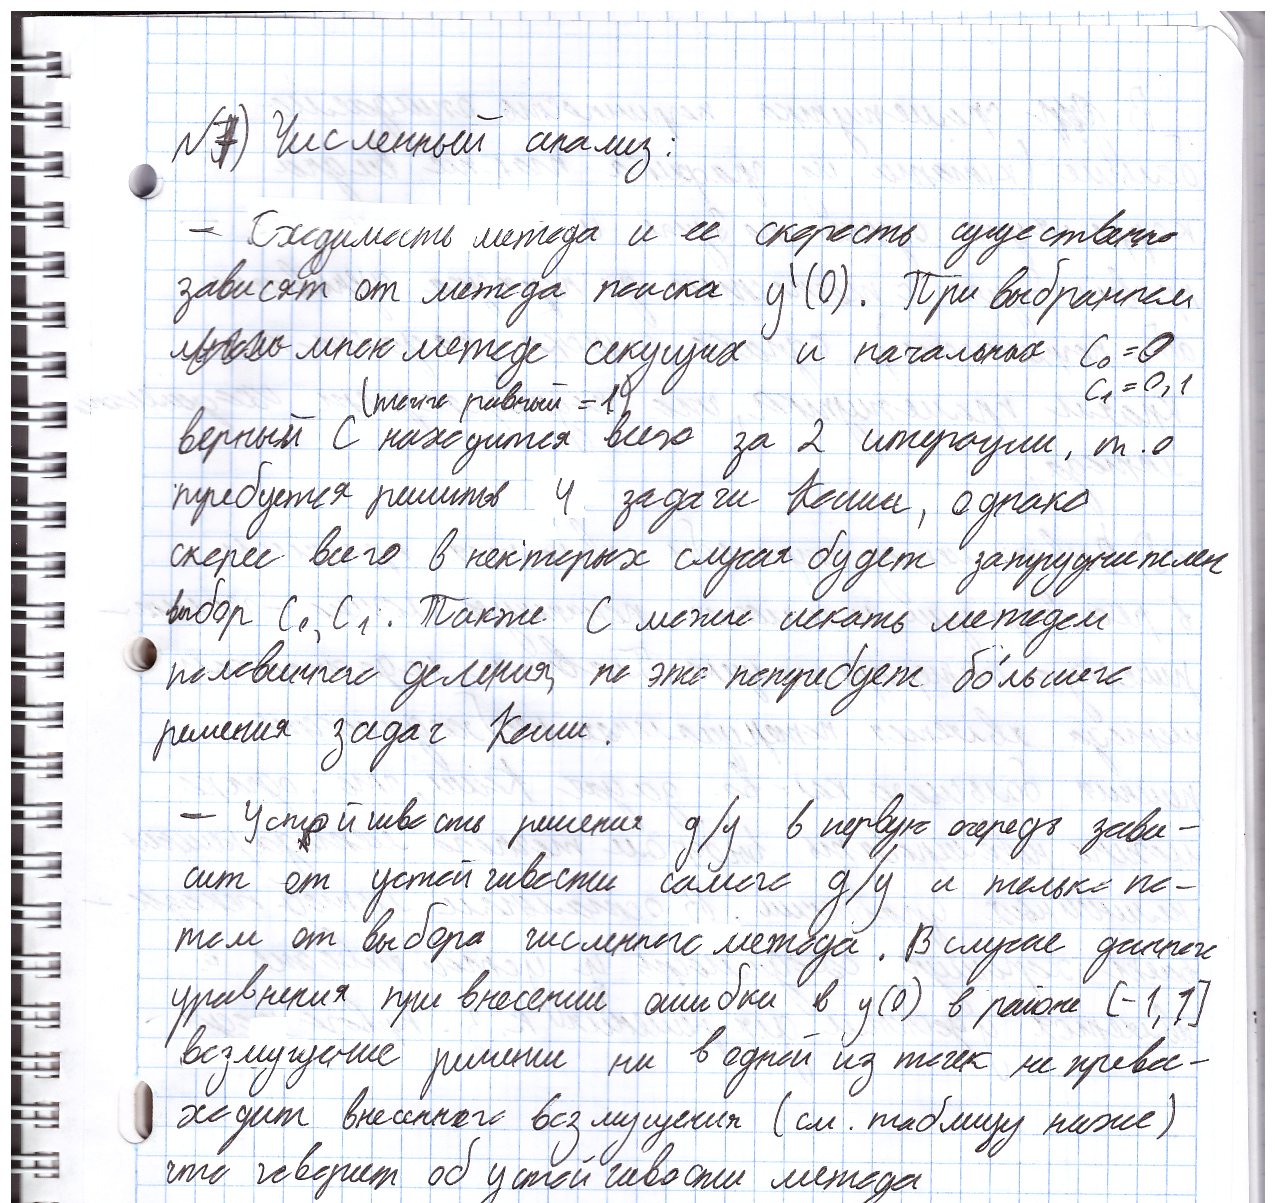 №7) Численный анализ:
– Сходимость метода и ее скорость существенно
зависят от метода поиска y'(0). При выбранном
мною методе секущих и начальных C₀=0
C₁=0,1
(точно равный =1)
верный C находится всего за 2 итерации, т.о
требуется решить 4 задачи Коши, однако
скорее всего в некторых случая будет затруднителен
выбор C₀, C₁. Также C можно искать методом
половинного деления, но это потребует бо́льшего
решения задач Коши.
– Устойчивость решения д/у в первую очередь зави-
сит от устойчивости самого д/у и только по-
том от выбора численного метода. В случае данного
уравнения при внесении ошибки в y(0) в районе [-1,1]
возмущение решение ни в одной из точек не превос-
ходит внесенного возмущения (см. таблицу ниже)
что говорит об устойчивости метода